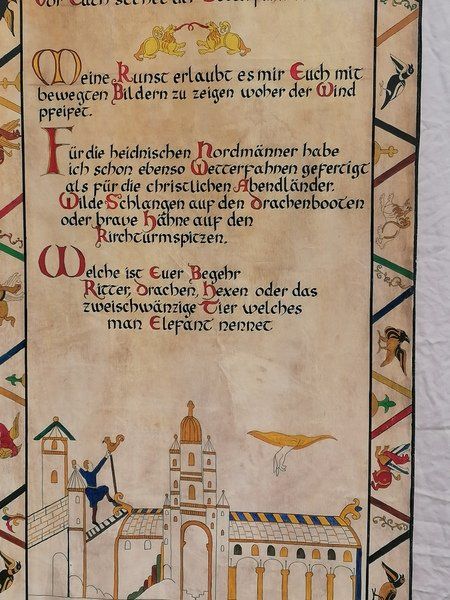 Vor Euch stehet der
Meine Kunst erlaubt es mir Euch mit
bewegten Bildern zu zeigen woher der Wind
pfeifet.
Für die heidnischen Nordmänner habe
ich schon ebenso Wetterfahnen gefertigt
als für die christlichen Abendländer.
Wilde Schlangen auf den Drachenbooten
oder brave Hähne auf den
Kirchturmspitzen.
Welche ist Euer Begehr
Ritter, Drachen, Hexen oder das
zweischwänzige Tier welches
man Elefant nennet